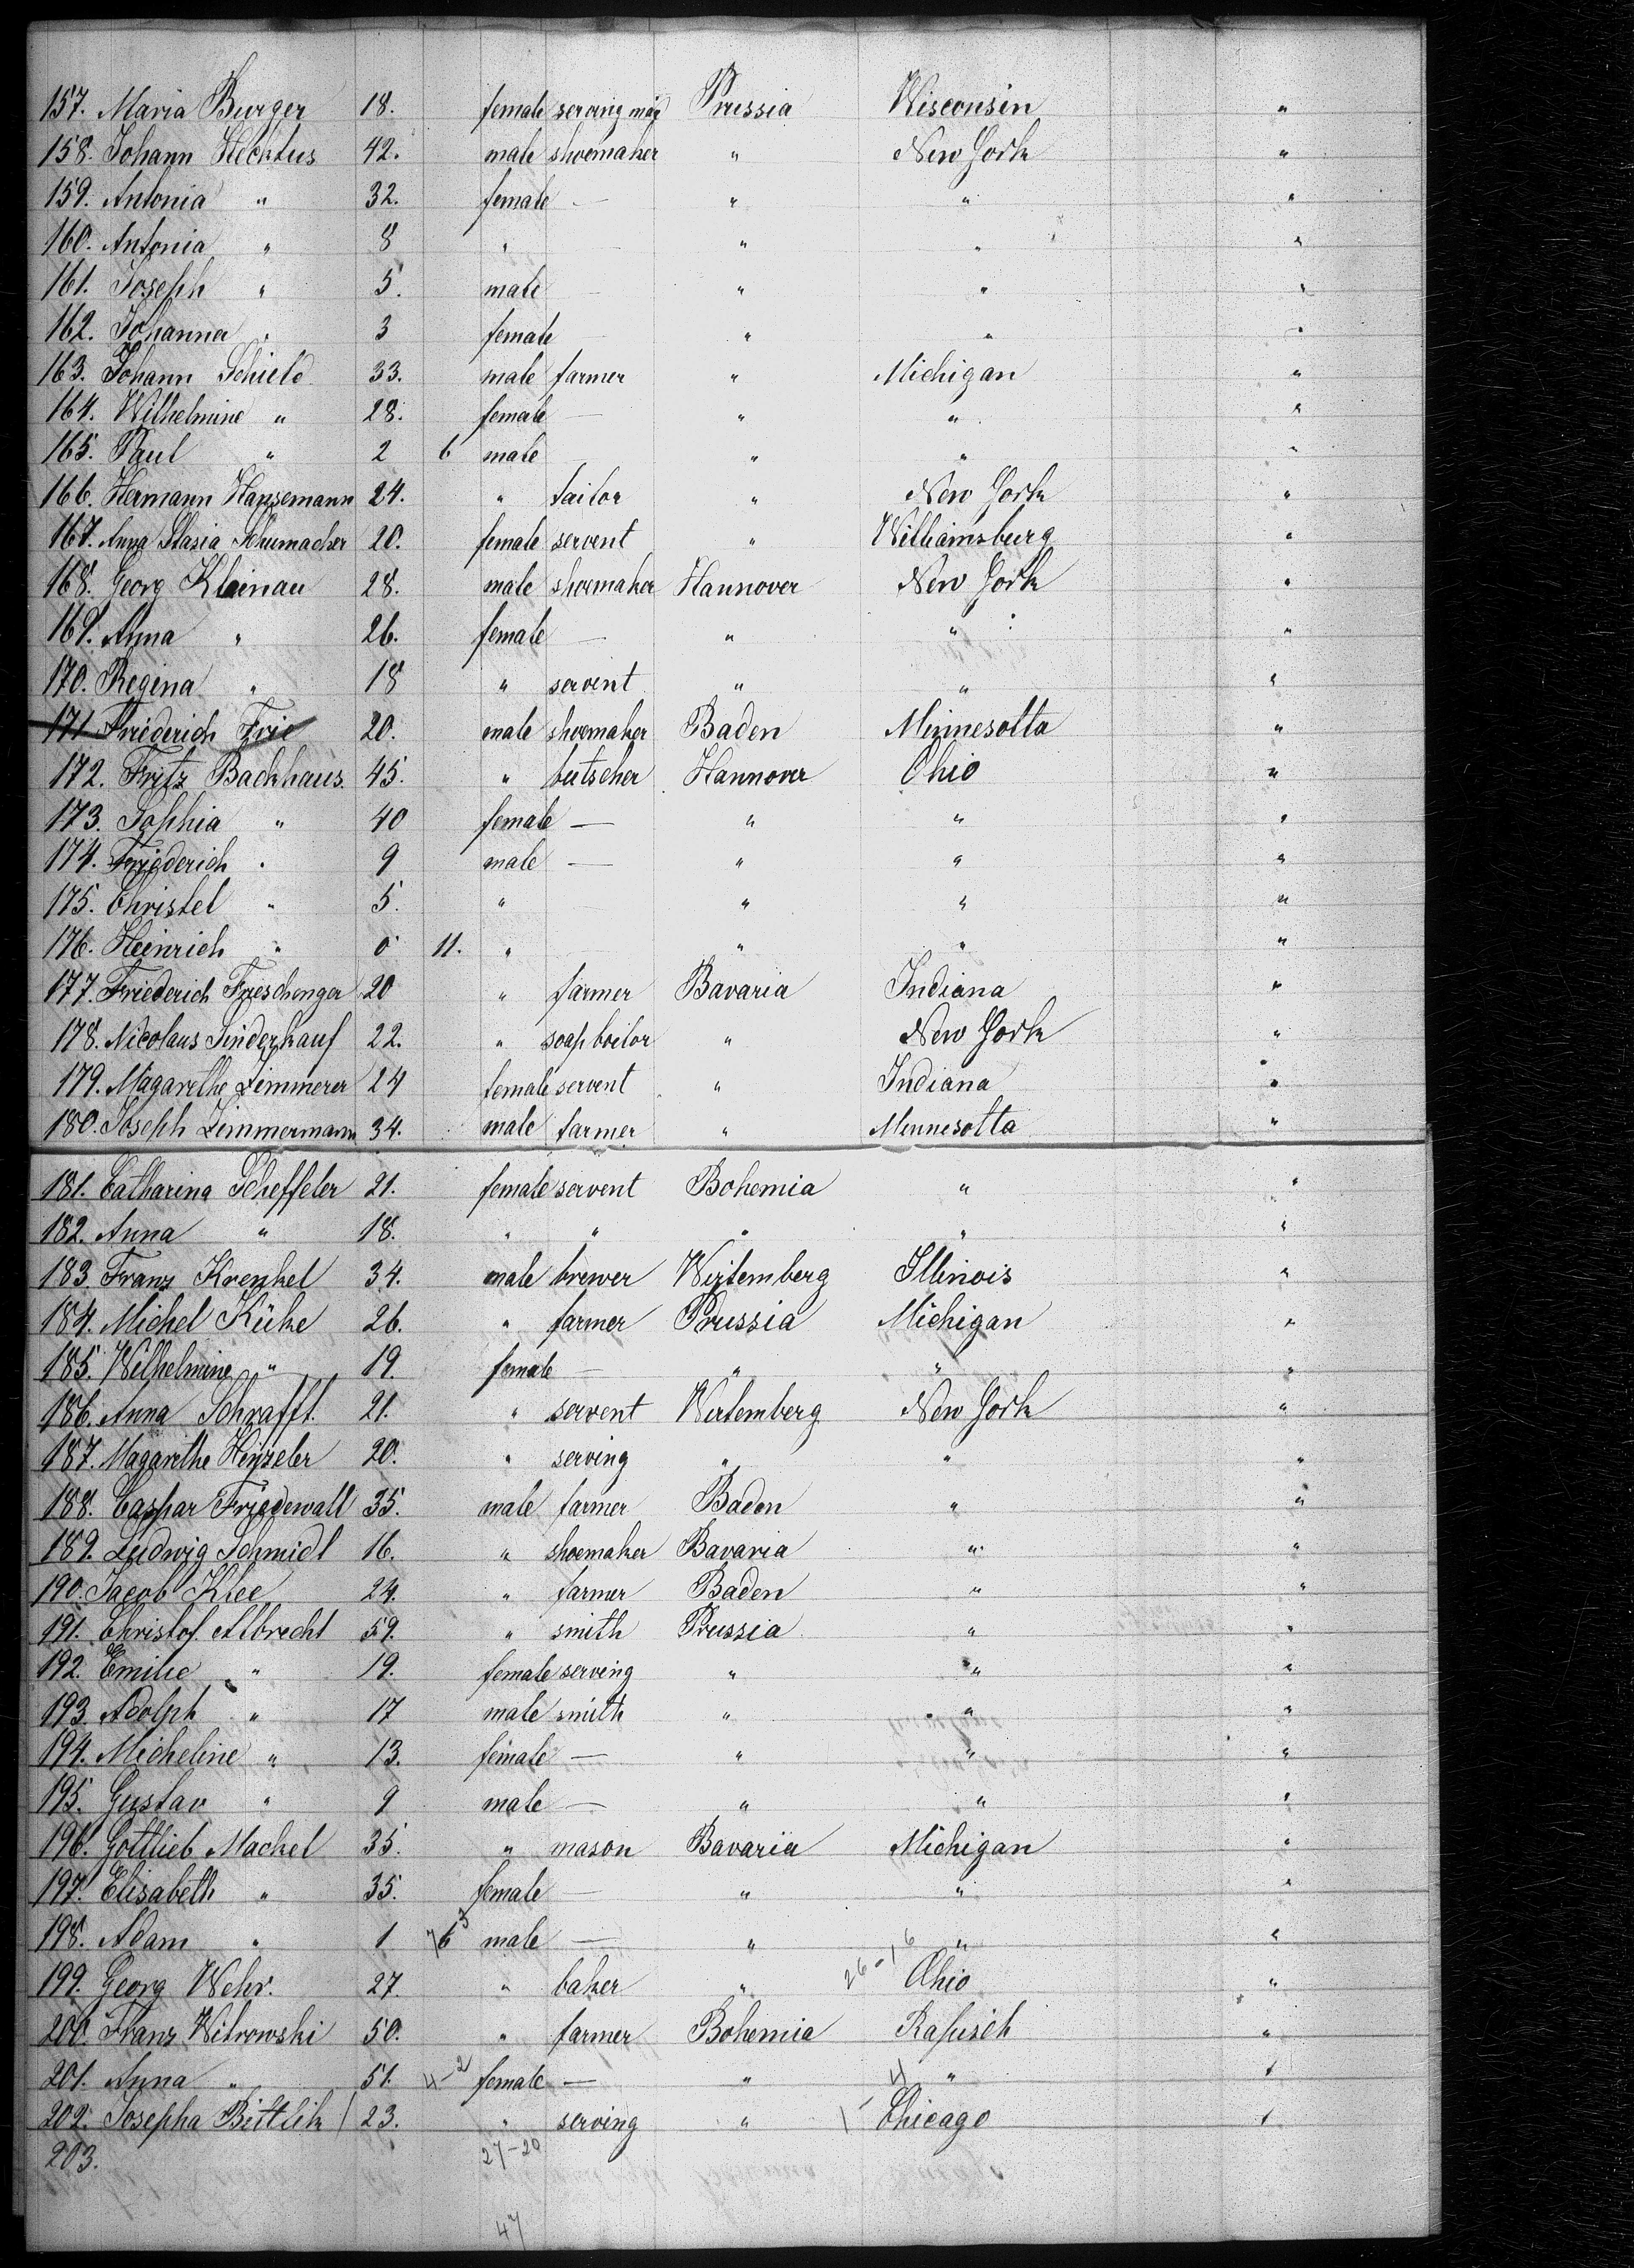 157. Maria Burger 18. female serving mag Prussia Wisconsin "
158. Johann Hecktus 42. male shoemaker " New York "
159. Antonia " 32. female — " " "
160. Antonia " 8 " " " "
161. Joseph " 5. male " " "
162. Johanna " 3 female " " "
163. Johann Schield 33. male farmer " Michigan "
164. Wilhelmine " 28. female — " " "
165. Paul " 2 6 male " " "
166. Hermann Hansemann 24. " tailor " New York "
167. Anna Stasia Schumacher 20. female servent " Williamsburg "
168. Georg Kleinau 28. male shoemaker Hannover New York "
169. Anna " 26. female — " " "
170. Regina " 18 " servent " " "
171 Friederich Frie 20. male shoemaker Baden Minnesotta "
172. Fritz Backhaus. 45. " butscher Hannover Ohio "
173. Sophia " 40 female — " " "
174. Friederich " 9 male — " " "
175. Christel " 5. " " " "
176. Heinrich " 0 11. " " " "
177. Friederich Frieschenger 20 " farmer Bavaria Indiana "
178. Nicolaus Sinderhauf 22. " soap boilor " New York "
179. Magarethe Zimmerer 24 female servent " Indiana "
180. Joseph Zimmermann 34. male farmer " Minnesotta "
181. Catharina Scheffeler 21. female servent Bohemia " "
182. Anna " 18. " " " " "
183. Franz Krenkel 34. male brewer Wirtemberg Illinois "
184. Michel Kühe 26. " farmer Prussia Michigan "
185. Wilhelmine " 19. female — " " "
186. Anna Schrafft. 21. " servent Wirtemberg New York "
187. Magarethe Hinzeler 20. " serving " " "
188. Caspar Friedewall 35. male farmer Baden " "
189. Ludwig Schmidt 16. " shoemaker Bavaria " "
190. Jacob Klee 24. " farmer Baden " "
191. Christof. Albrecht 59. " smith Prussia " "
192. Emilie " 19. female serving " " "
193. Adolph " 17 male smith " " "
194. Micheline " 13. female — " " "
195. Gustav " 9 male — " " "
196. Gottlieb Mackel 35. " mason Bavaria Michigan "
197. Elisabeth " 35. female — " " "
198. Adam " 1 6 male — " " "
199. Georg Wehr. 27. " baker " 26-16 Ohio "
200. Franz Witrowski 50. " farmer Bohemia "
201. Anna " 51. 4-2 female — " 4 " "
202. Josepha Bittlik 23. " serving " Chicago "
203. 27-20
47